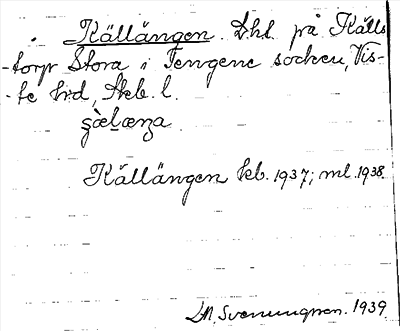 Källängen. Lht. på Källs
-torp Stora i Tengene socken, Vis-
-te hd, Skb. l.
Källängen kb. 1937; ml. 1938.
D.N. Svenungsson. 1939.